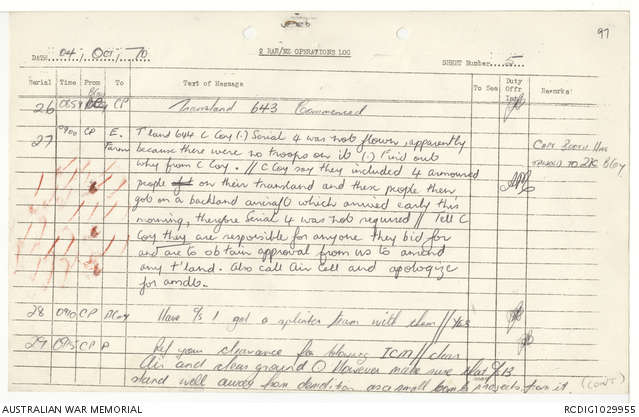 97
2 RAR/NZ OPERATIONS LOG
DATE 04, Oct, 70
SHEET Number 5
Serial Time From To Text of Message To See Duty Offr Remarks
26 0854 CP Transland 643 Commenced
27 0900 CP E. Farm T'land 644 C Coy (.) Serial 4 was not flown apparently
because there were no troops on it (.) Find out
why from C Coy. // C Coy say they included 4 armoured
people on their transland and these people then
got on a backland aircraft which arrived early this
morning, therefore Serial 4 was not required // Tell C
Coy they are responsible for anyone they bid for
and are to obtain approval from us to amend
any t'land. Also call Air Cell and apologize
for amdts.
Capt Booth has
to B Coy
28 0910 CP Have C/S 1 got a splinter team with them // Yes
29 0915 CP your clearance for blowing ICM // clear
Air and clear ground O However make sure that
stand well away from demolition as a small bomb projects from it (cont.)
AUSTRALIAN WAR MEMORIAL
RCDIG1029955